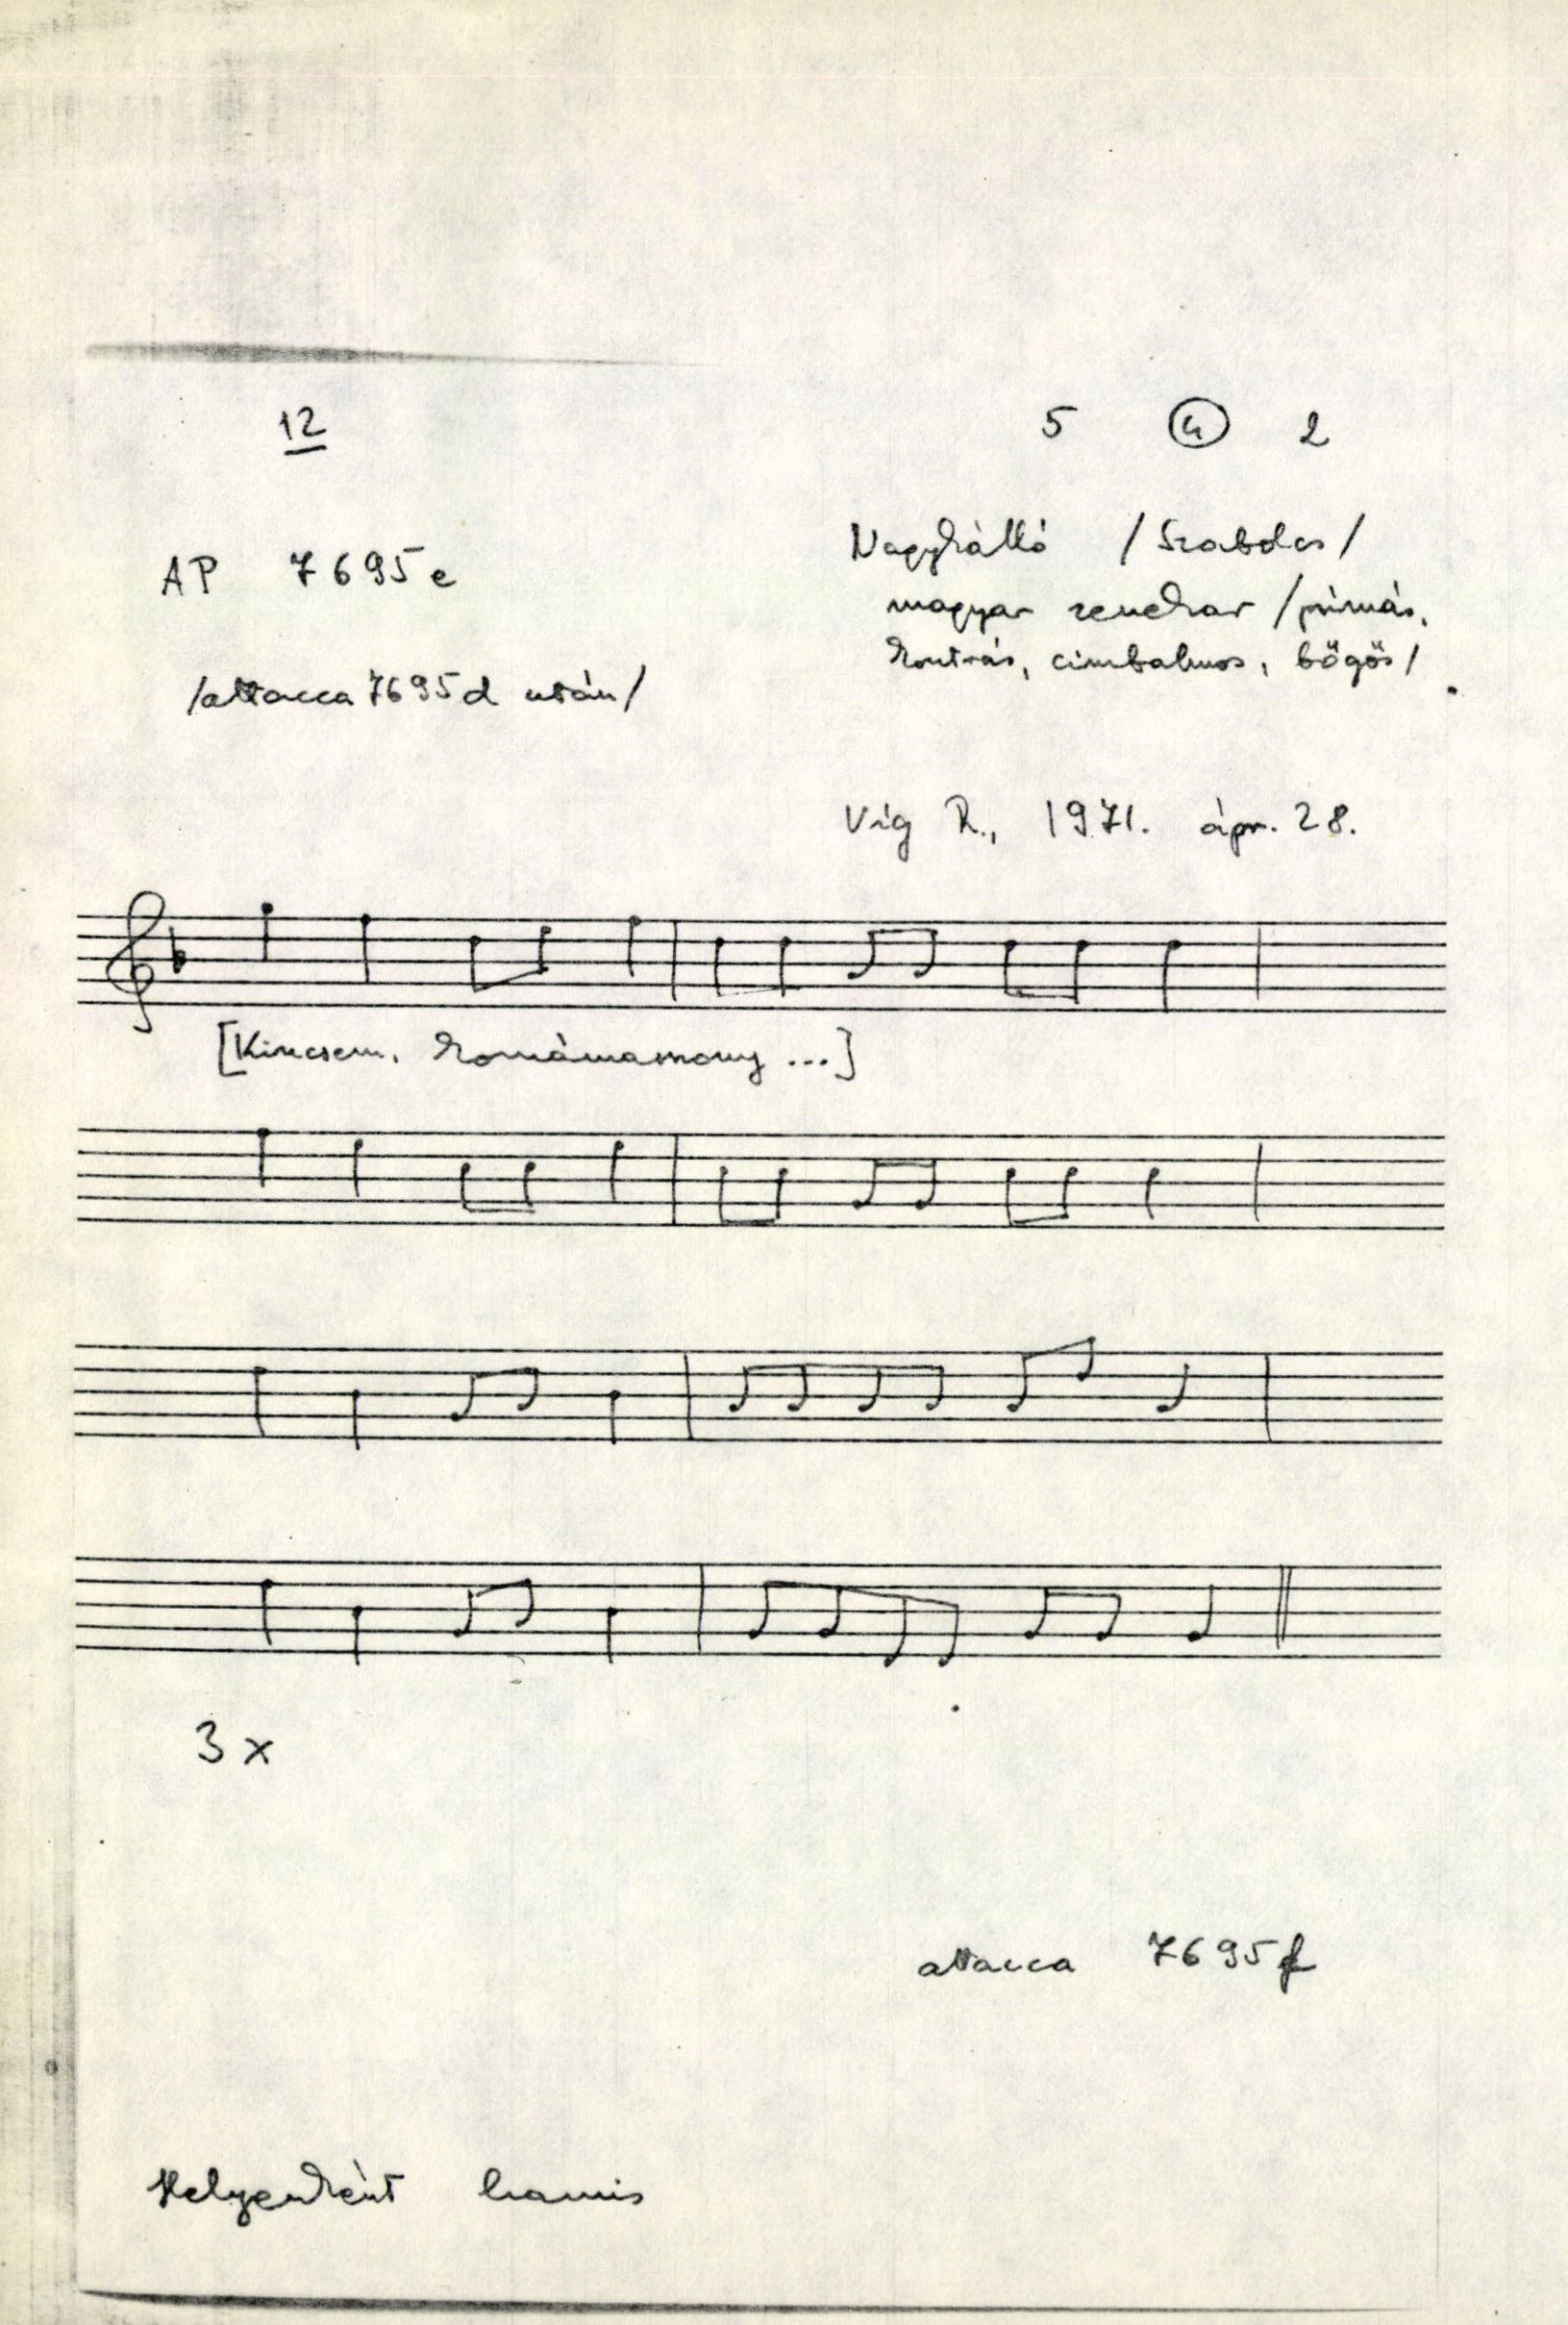 12
5 4 2
AP 7695e
Nagykálló /Szabolcs/
magyar zenekar /prímás,
kontrás, cimbalmos, bőgős/
/attacca 7695d után/
Víg R., 1971. ápr. 28.
[Kincsem, komámasszony ...]
3x
attacca 7695f
Helyenként hamis